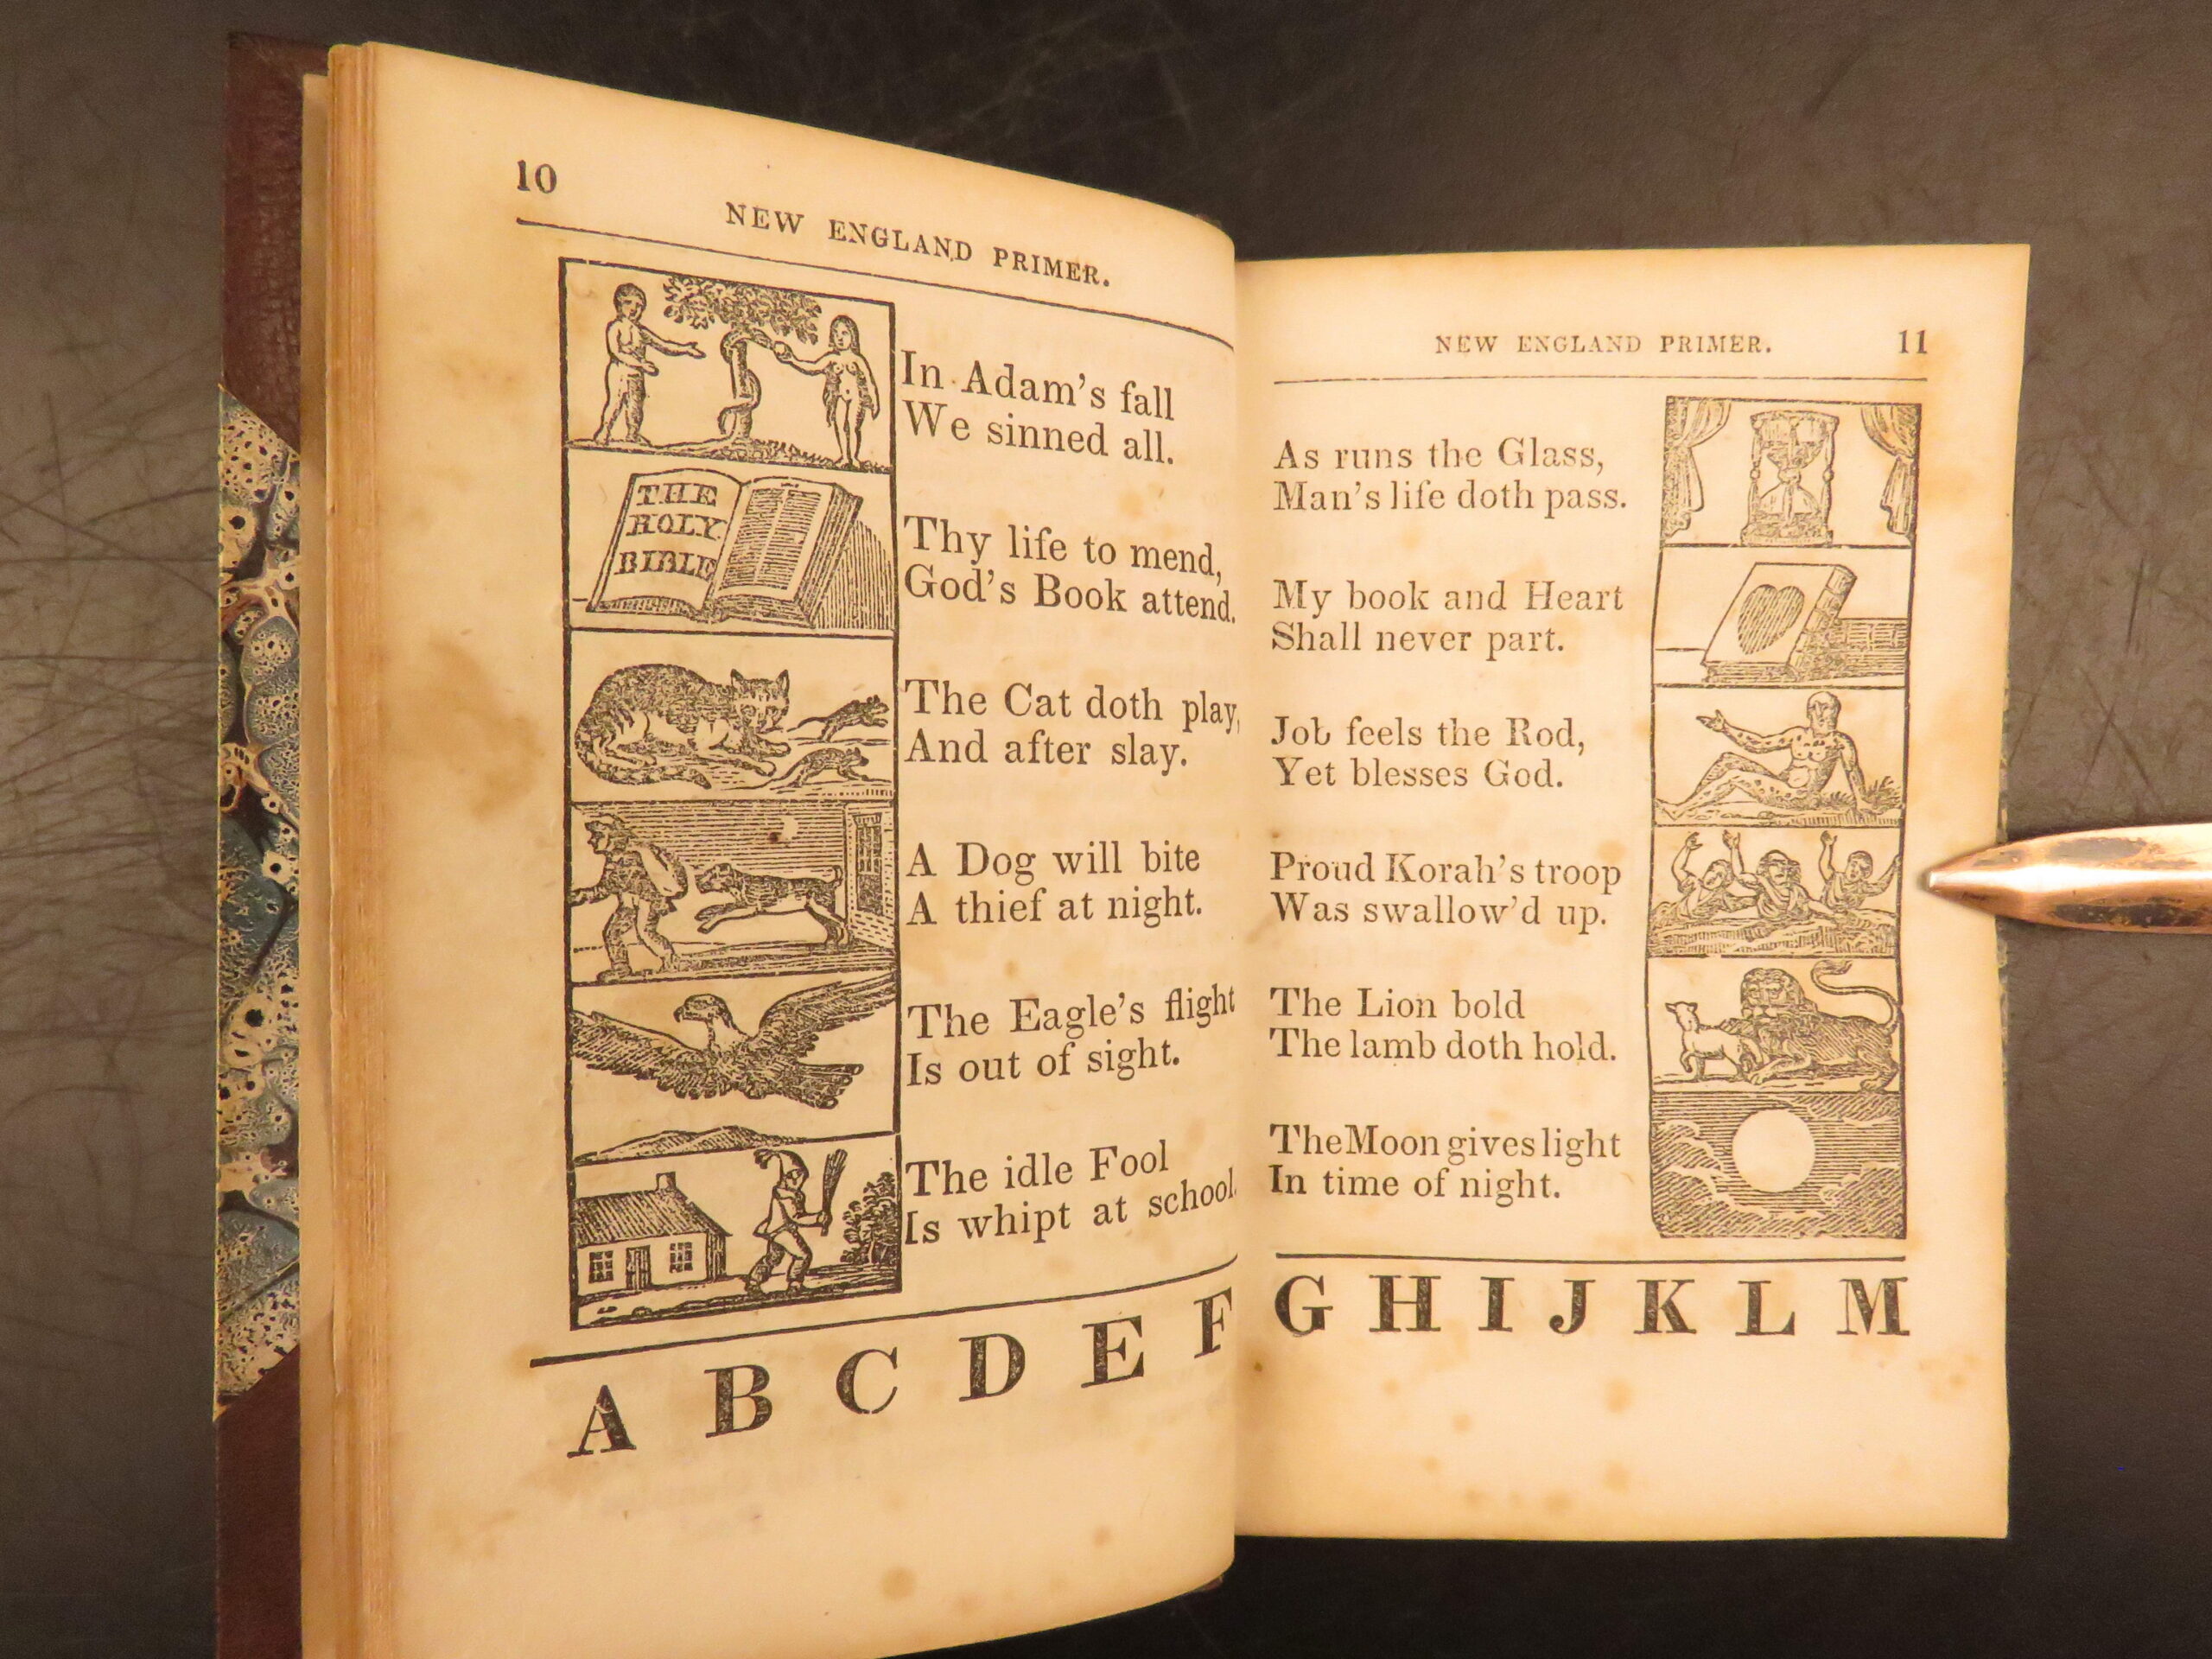 10
NEW ENGLAND PRIMER.
In Adam's fall
We sinned all.
THE
HOLY
BIBLE
Thy life to mend,
God's Book attend.
The Cat doth play,
And after slay.
A Dog will bite
A thief at night.
The Eagle's flight
Is out of sight.
The idle Fool
Is whipt at school.
A B C D E F
NEW ENGLAND PRIMER. 11
As runs the Glass,
Man's life doth pass.
My book and Heart
Shall never part.
Job feels the Rod,
Yet blesses God.
Proud Korah's troop
Was swallow'd up.
The Lion bold
The lamb doth hold.
The Moon gives light
In time of night.
G H I J K L M